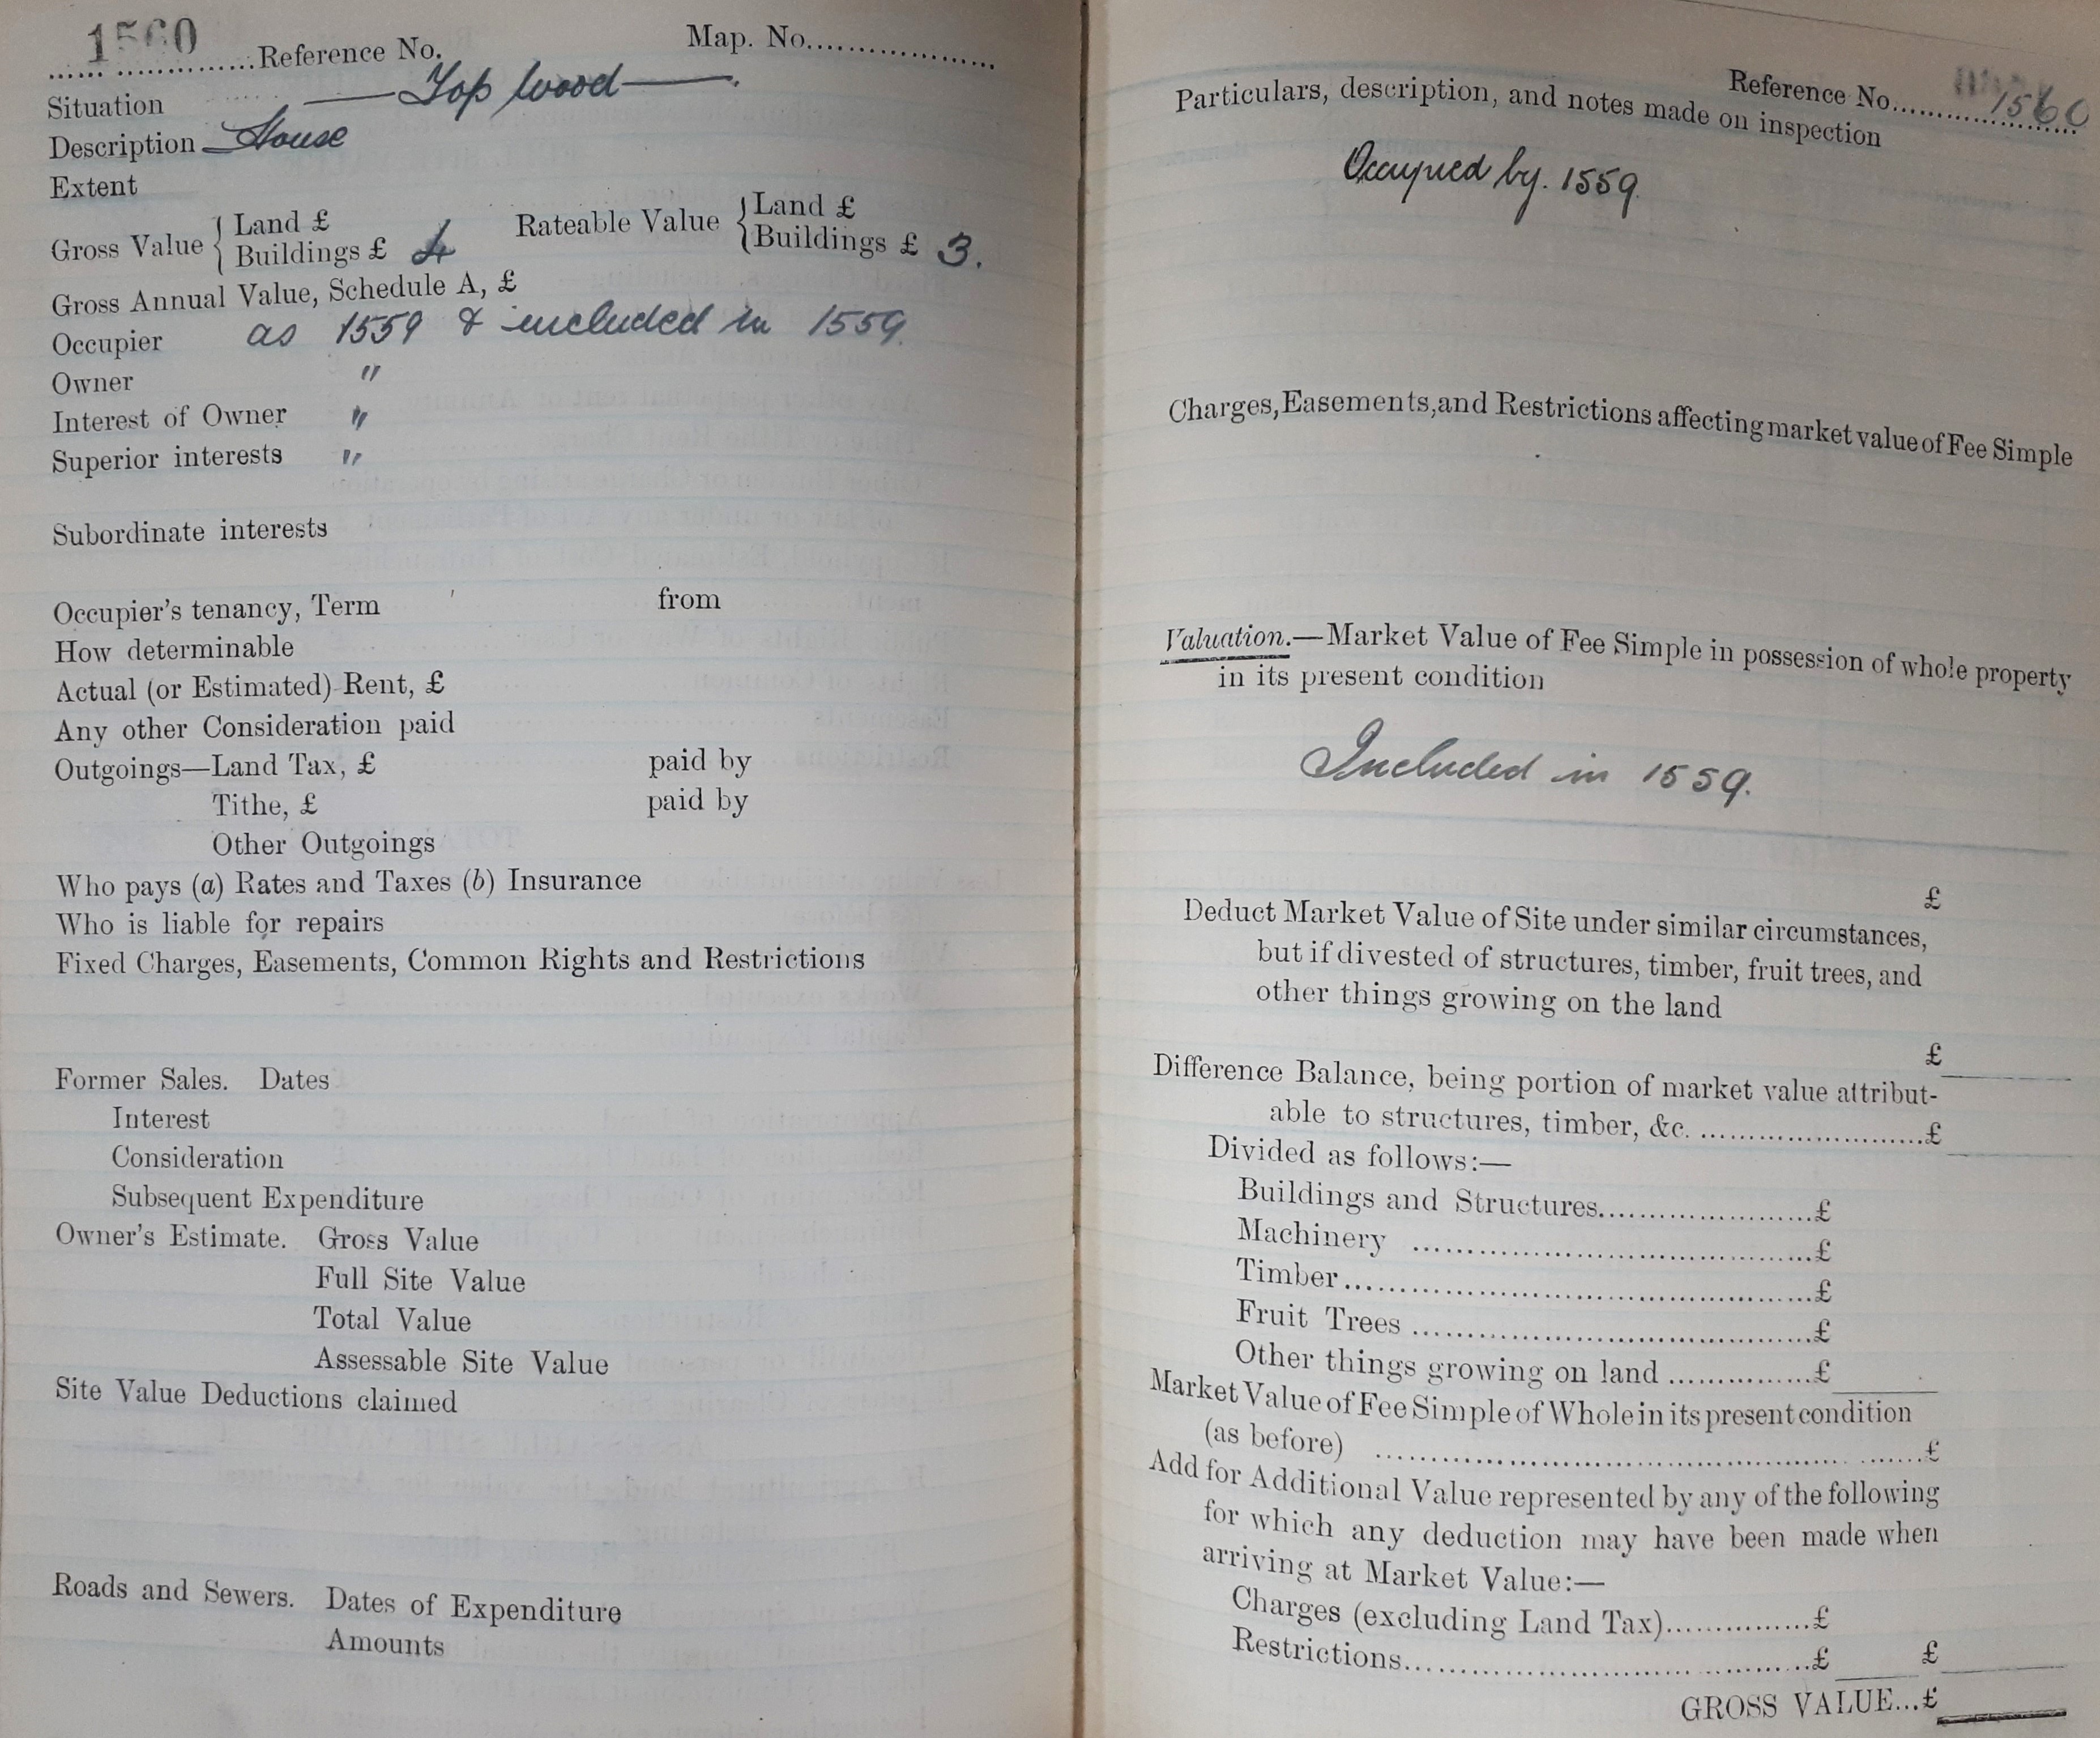 1560 Reference No. Map. No.
Situation — Top Wood —.
Description House
Extent
Gross Value { Land £ Rateable Value { Land £
Buildings £ 4 Buildings £ 3.
Gross Annual Value, Schedule A, £
Occupier as 1559 & included in 1559.
Owner "
Interest of Owner "
Superior interests "
Subordinate interests
Occupier's tenancy, Term from
How determinable
Actual (or Estimated) Rent, £
Any other Consideration paid
Outgoings—Land Tax, £ paid by
Tithe, £ paid by
Other Outgoings
Who pays (a) Rates and Taxes (b) Insurance
Who is liable for repairs
Fixed Charges, Easements, Common Rights and Restrictions
Former Sales. Dates
Interest
Consideration
Subsequent Expenditure
Owner's Estimate. Gross Value
Full Site Value
Total Value
Assessable Site Value
Site Value Deductions claimed
Roads and Sewers. Dates of Expenditure
Amounts
Reference No. 1560
Particulars, description, and notes made on inspection
Occupied by. 1559.
Charges, Easements, and Restrictions affecting market value of Fee Simple
Valuation.—Market Value of Fee Simple in possession of whole property
in its present condition
Included in 1559.
£
Deduct Market Value of Site under similar circumstances,
but if divested of structures, timber, fruit trees, and
other things growing on the land
£
Difference Balance, being portion of market value attribut-
able to structures, timber, &c. ........................£
Divided as follows:—
Buildings and Structures......................£
Machinery ..........................................£
Timber................................................£
Fruit Trees ..........................................£
Other things growing on land ...............£
Market Value of Fee Simple of Whole in its present condition
(as before) ......................................................£
Add for Additional Value represented by any of the following
for which any deduction may have been made when
arriving at Market Value:—
Charges (excluding Land Tax)...............£
Restrictions..........................................£ £
GROSS VALUE...£